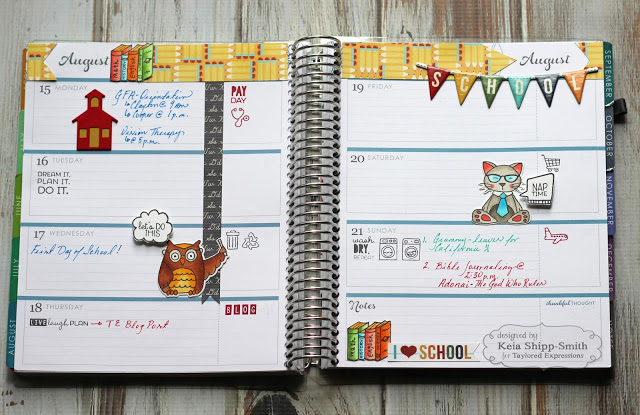 August
15 MONDAY
GFA-Orientation
Clayton @ 9am
Cooper @ 1p.m.
Vision Therapy
@ 5p.m.
PAY
DAY
16 TUESDAY
DREAM IT.
PLAN IT.
DO IT.
17 WEDNESDAY
First Day of School!
let's DO
THIS
18 THURSDAY
LIVE laugh PLAN → TE Blog Post
BLOG
JUNE
JULY
AUGUST
August
SCHOOL
19 FRIDAY
20 SATURDAY
NAP
TIME
21 SUNDAY
wash.
DRY.
REPEAT
1. Grammy-Leaves for
California
2. Bible Journaling @
2:30p.m.
Adonai-The God Who Rules
Notes
thankful THOUGHT
I ♥ SCHOOL
designed by
Keia Shipp-Smith
for Taylored Expressions
SEPTEMBER
OCTOBER
NOVEMBER
DECEMBER